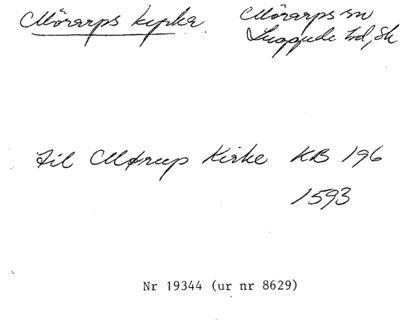 Mörarps kyrka
Mörarps sn
Luggude hd, Sk
til Mørup Kirke KB 196
1593
Nr 19344 (ur nr 8629)